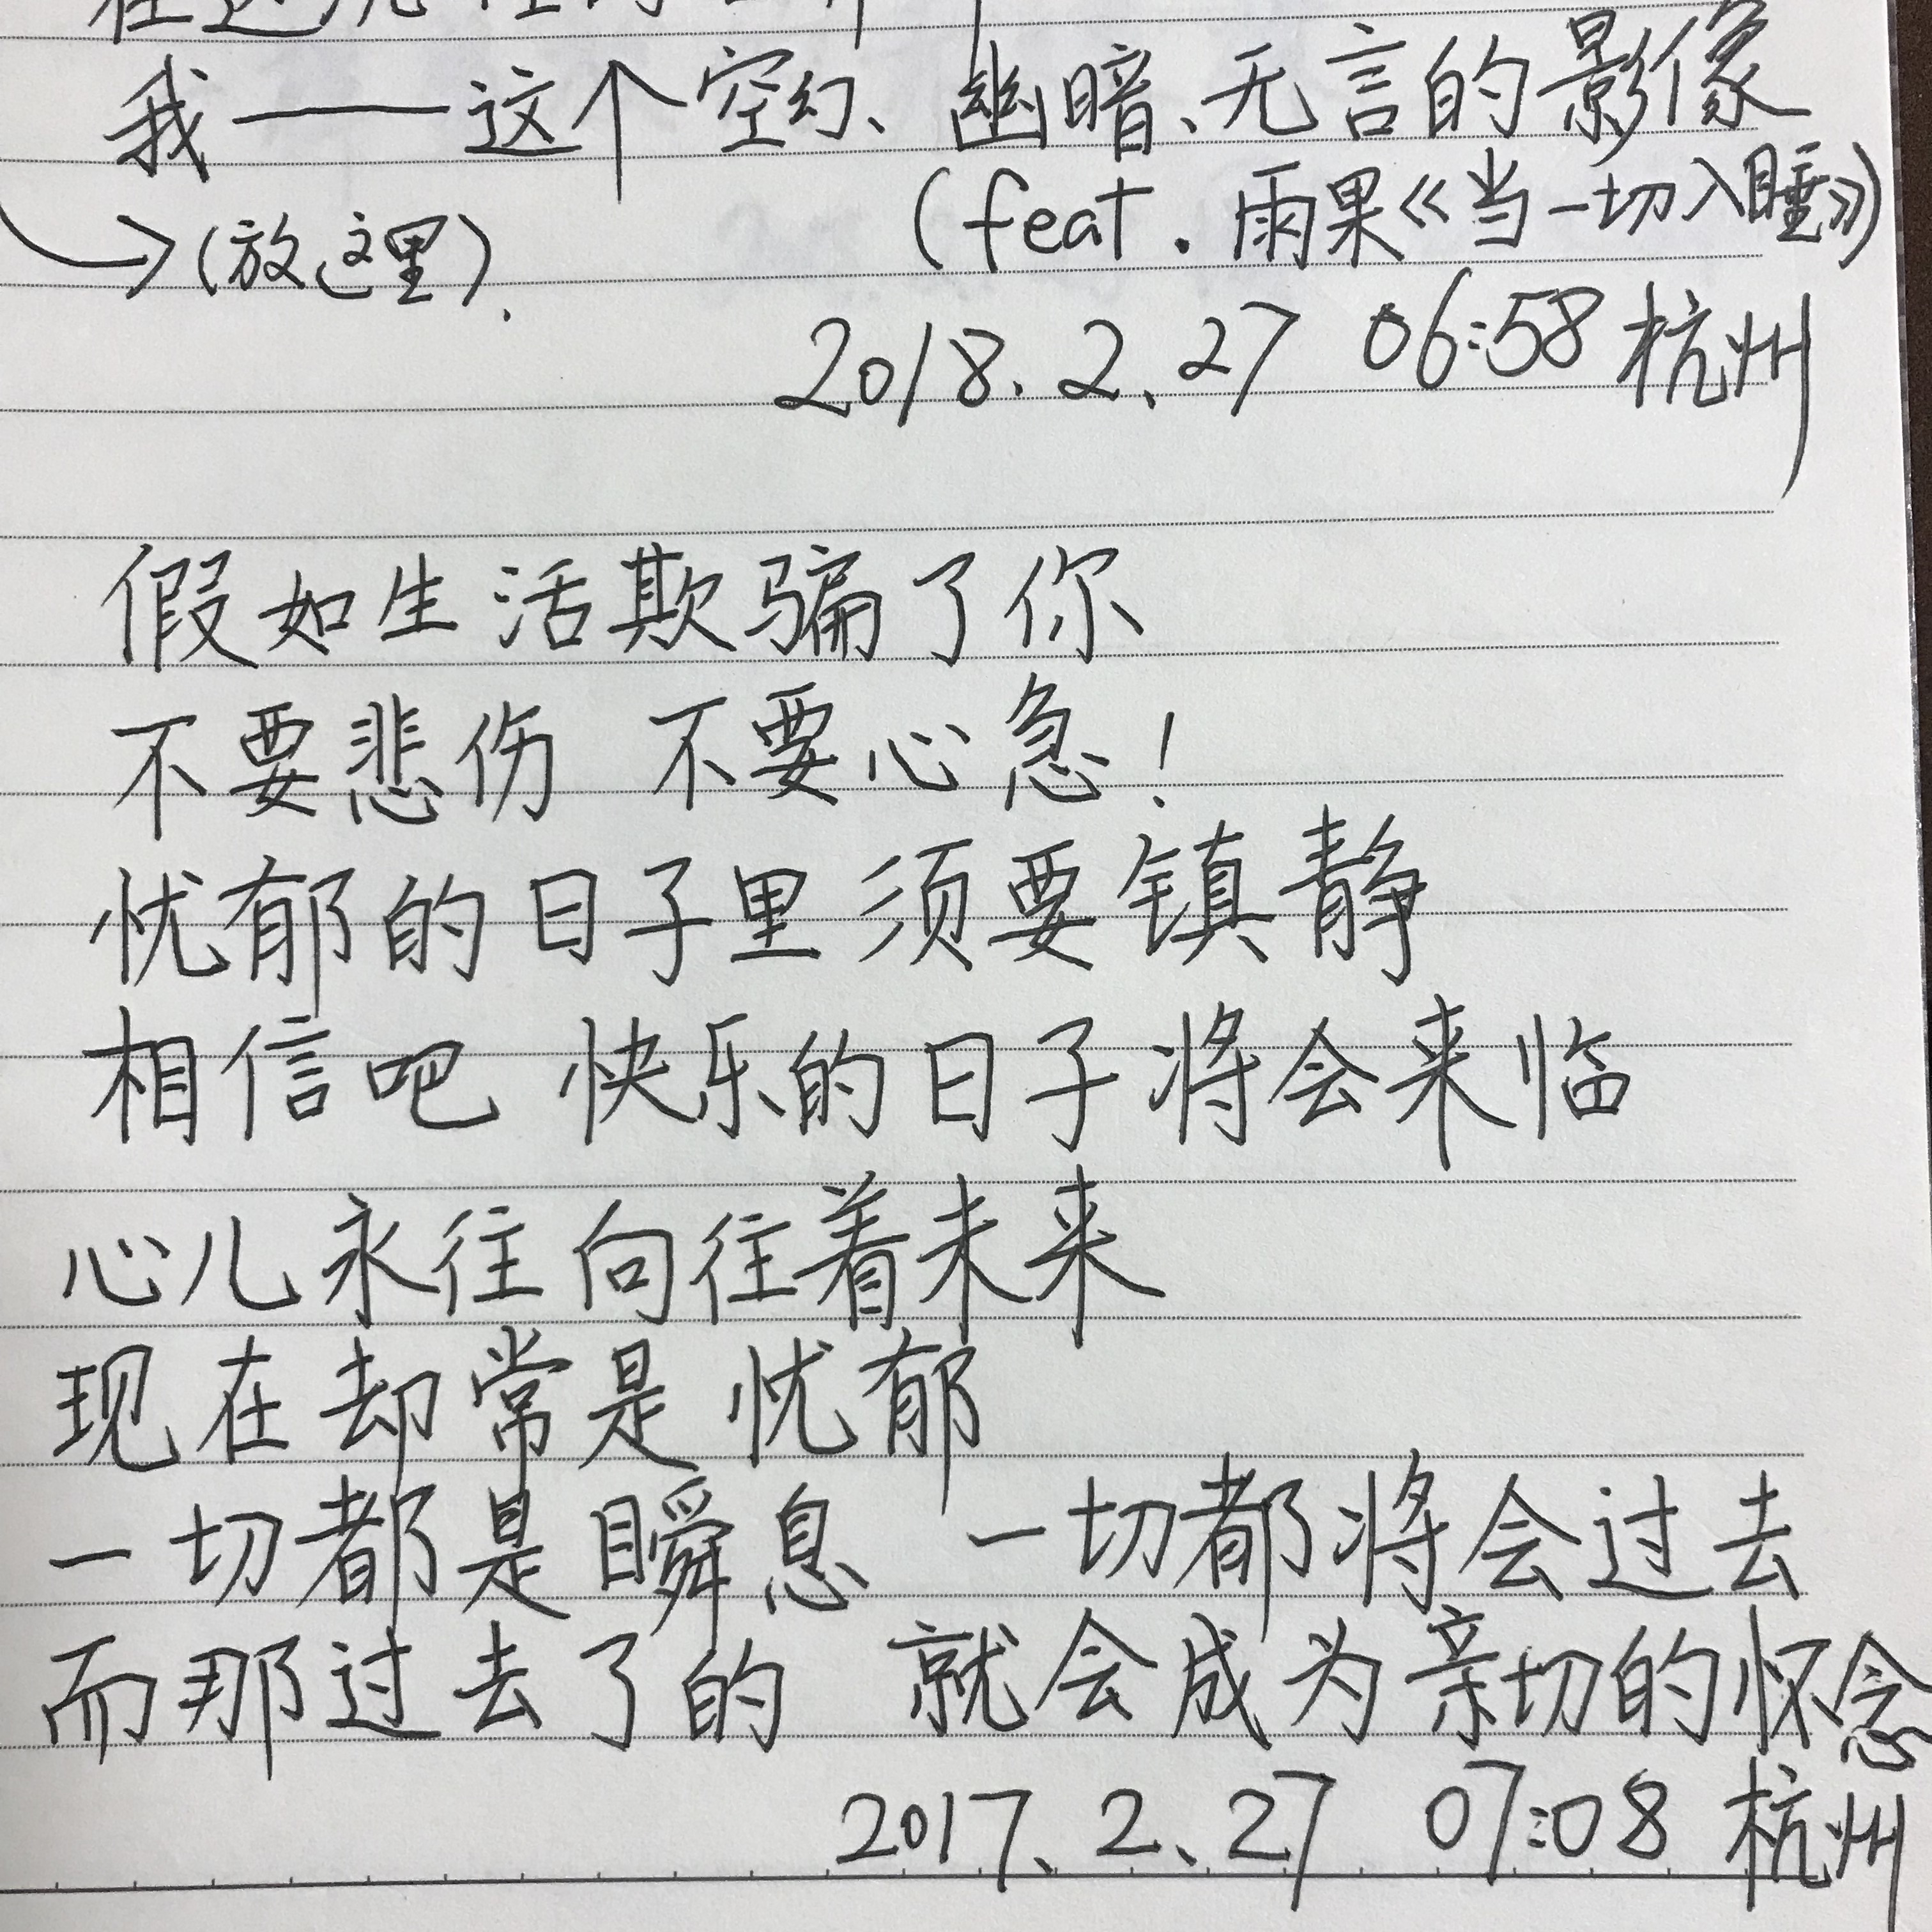 我——这个空幻、幽暗、无言的影像
(feat.雨果《当一切入睡》)
→(放这里).
2018.2.27 06:58 杭州
假如生活欺骗了你
不要悲伤 不要心急!
忧郁的日子里须要镇静
相信吧 快乐的日子将会来临
心儿永往向往着未来
现在却常是忧郁
一切都是瞬息 一切都将会过去
而那过去了的 就会成为亲切的怀念
2017.2.27 07:08 杭州